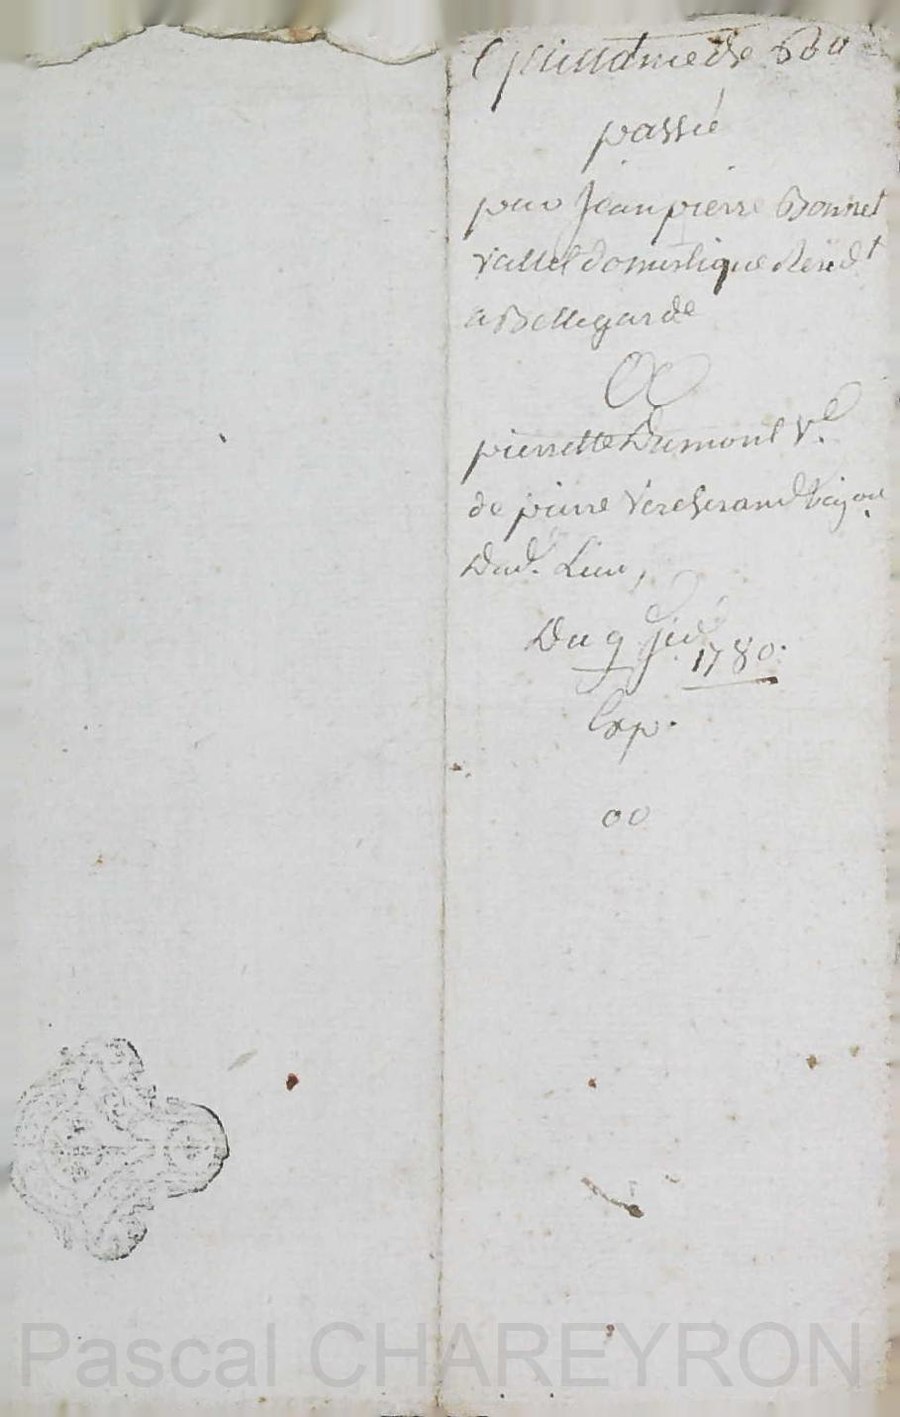 quittance de 660
passé
par Jean pierre Bonnet
vallet domestique Resid^t
a Bellegarde
a
pierrette Dumont V^e
de pierre Vercherand
Dud. Lieu,
Du 9
1780.
Exp.
00
Pascal CHAREYRON